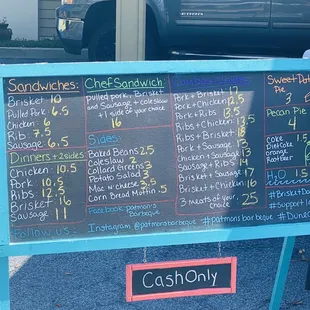 Sandwiches:
Brisket 10
Pulled Pork 6.5
Chicken: 6
Rib: 7.5
Sausage: 6.5
Dinners + 2 sides:
Chicken: 10.5
Pork: 10.5
Ribs: 12.5
Brisket 16
Sausage 11
Follow us
Chef Sandwich
pulled pork, Brisket
and Sausage + coleslaw
+ 1 side of your choice
16
Sides:
Baked Beans 2.5
Coleslaw 2
Collard Greens 3
Potato Salad 3
Mac n cheese 3.5
Corn Bread Muffin .5
Facebook: patmon's Barbeque
Instagram @patmonsbarbeque
Pork + Brisket 17
Pork + Chicken 12.5
Pork + Ribs 13.5
Ribs + Chicken 13.5
Ribs + Brisket 18
Pork + Sausage 13
Chicken + Sausage 13
Sausage + Ribs 14
Brisket + Sausage 17
Brisket + Chicken 16
3 meats of your choice 25
#patmonsbarbeque
Sweet Pot
Pie
3
Pecan Pie
4
Coke
Diet Coke
orange
Rootbeer
H2O 1.5
#BrisketDa
#Support
#Dund
Cash Only